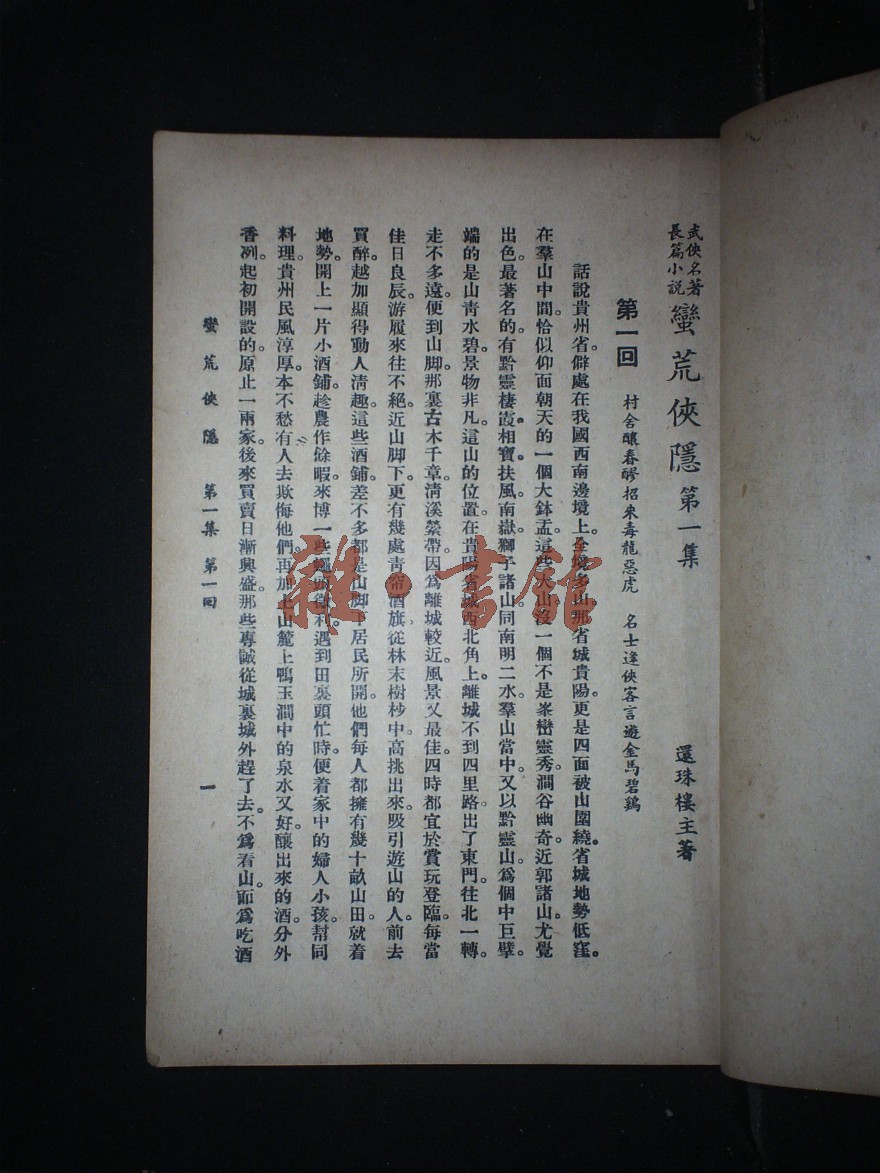 武俠名著
長篇小説
蠻荒俠隱 第一集
還珠樓主著
第一回 村舍釀春醪招來毒龍惡虎 名士逢俠客言遊金馬碧鷄
話說貴州省僻處在我國西南邊境上。全境多山那省城貴陽更是四面被山圍繞。省城地勢低窪。
在羣山中間。恰似仰面朝天的一個大鉢盂這些大山沒一個不是峯巒靈秀。澗谷幽奇。近郭諸山。尤覺
出色。最著名的。有黔靈棲霞相寶。扶風。南嶽獅子諸山。同南明二水。羣山當中。又以黔靈山。爲個中巨擘。
端的是山靑水碧。景物非凡。這山的位置。在貴陽省城西北角上。離城不到四里路。出了東門。往北一轉。
走不多遠。便到山脚。那裏古木千章。淸溪縈帶。因爲離城較近。風景又最佳。四時都宜於賞玩登臨。每當
佳日良辰。游履來往不絕。近山脚下。更有幾處靑帘酒旗。從林末樹杪中。高挑出來。吸引遊山的人。前去
買醉。越加顯得動人淸趣。這些酒鋪。差不多都是山脚下居民所開。他們每人都擁有幾十畝山田。就着
地勢。開上一片小酒鋪。趁農作餘暇。來博一些蠅頭微利。遇到田裏頭忙時。便着家中的婦人小孩。幫同
料理。貴州民風淳厚。本不愁有人去欺侮他們。再加上山麓上鴨玉澗中的泉水又好。釀出來的酒。分外
香冽。起初開設的。原止一兩家。後來買賣日漸興盛。那些專誠從城裏城外趕了去。不爲看山。而爲吃酒
蠻荒俠隱 第一集 第一回 一
雜·書館